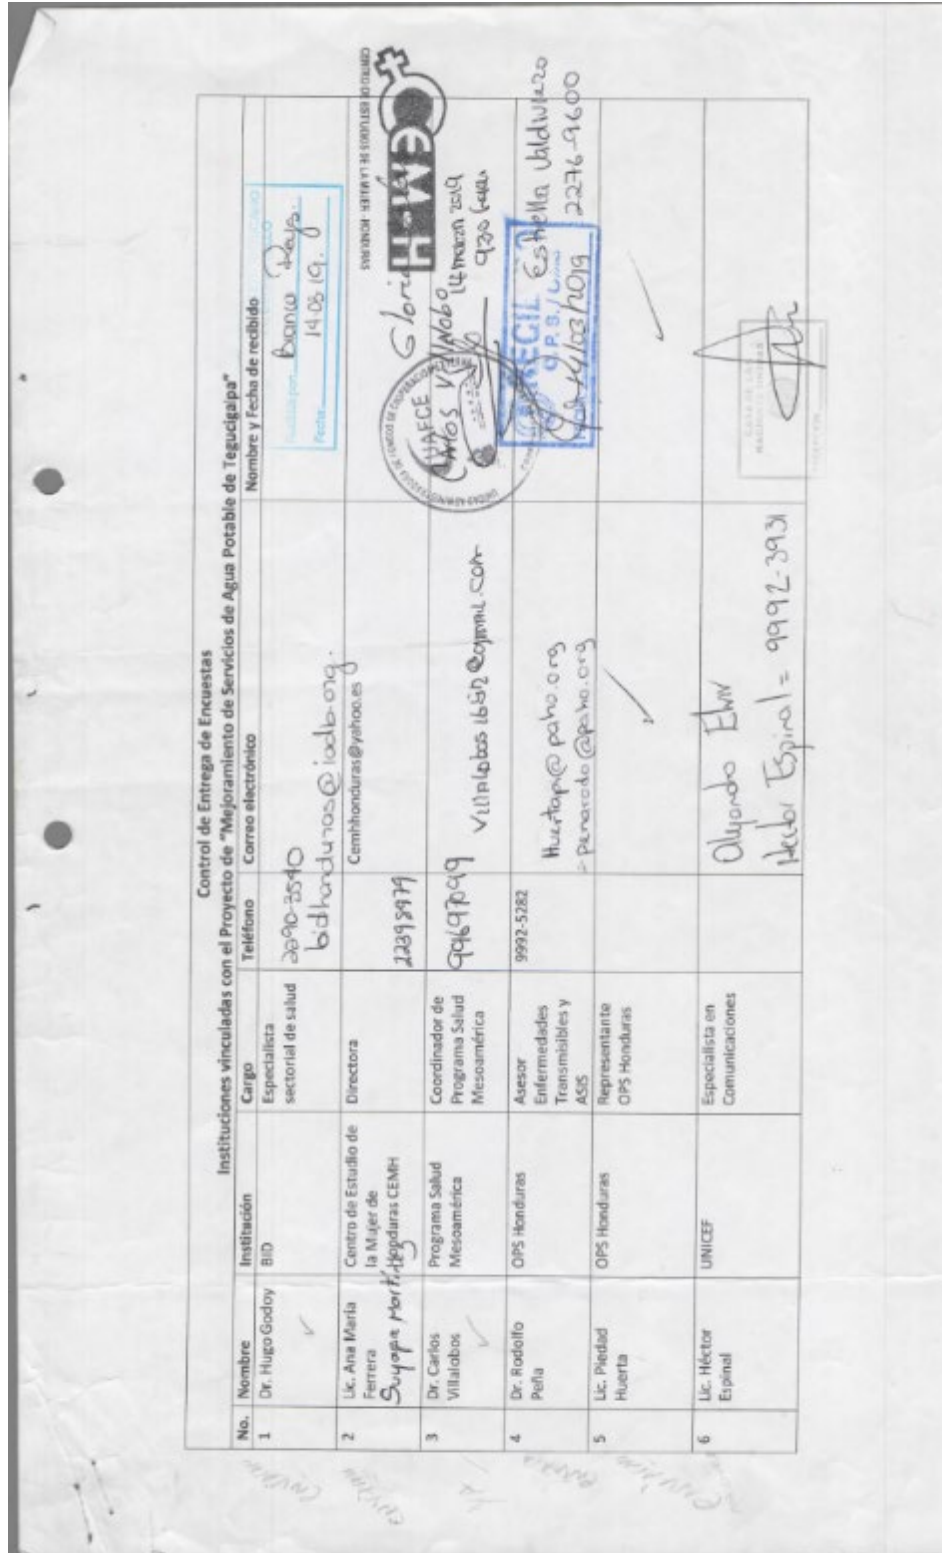 Control de Entrega de Encuestas
Instituciones vinculadas con el Proyecto de "Mejoramiento de Servicios de Agua Potable de Tegucigalpa"
No. Nombre Institución Cargo Teléfono Correo electrónico Nombre y Fecha de recibido
1 Dr. Hugo Godoy BID Especialista
sectorial de salud
2290-3540
bidhonduras@iadb.org.
Fecha: 14-03-19.
2 Lic. Ana María
Ferrera
Suyapa
Centro de Estudio de
la Mujer de
Honduras CEMH
Directora
22398979
Cemhhonduras@yahoo.es
Gloria
CENTRO DE ESTUDIOS DE LA MUJER - HONDURAS
CEM-H
3 Dr. Carlos
Villalobos
Programa Salud
Mesoamérica
Coordinador de
Programa Salud
Mesoamérica
99697099
UAFCE
Carlos
14 marzo 2019
4 Dr. Rodolfo
Peña
OPS Honduras
Asesor
Enfermedades
Transmisibles y
ASIS
9992-5282
Huertapi@paho.org
penarodo@paho.org
O.P.S./
14/03/2019
Estrella Valdivieso
2276-9600
5 Lic. Piedad
Huerta
OPS Honduras
Representante
OPS Honduras
6 Lic. Héctor
Espinal
UNICEF
Especialista en
Comunicaciones
Alejandro
Hector Espinal = 9992-3931